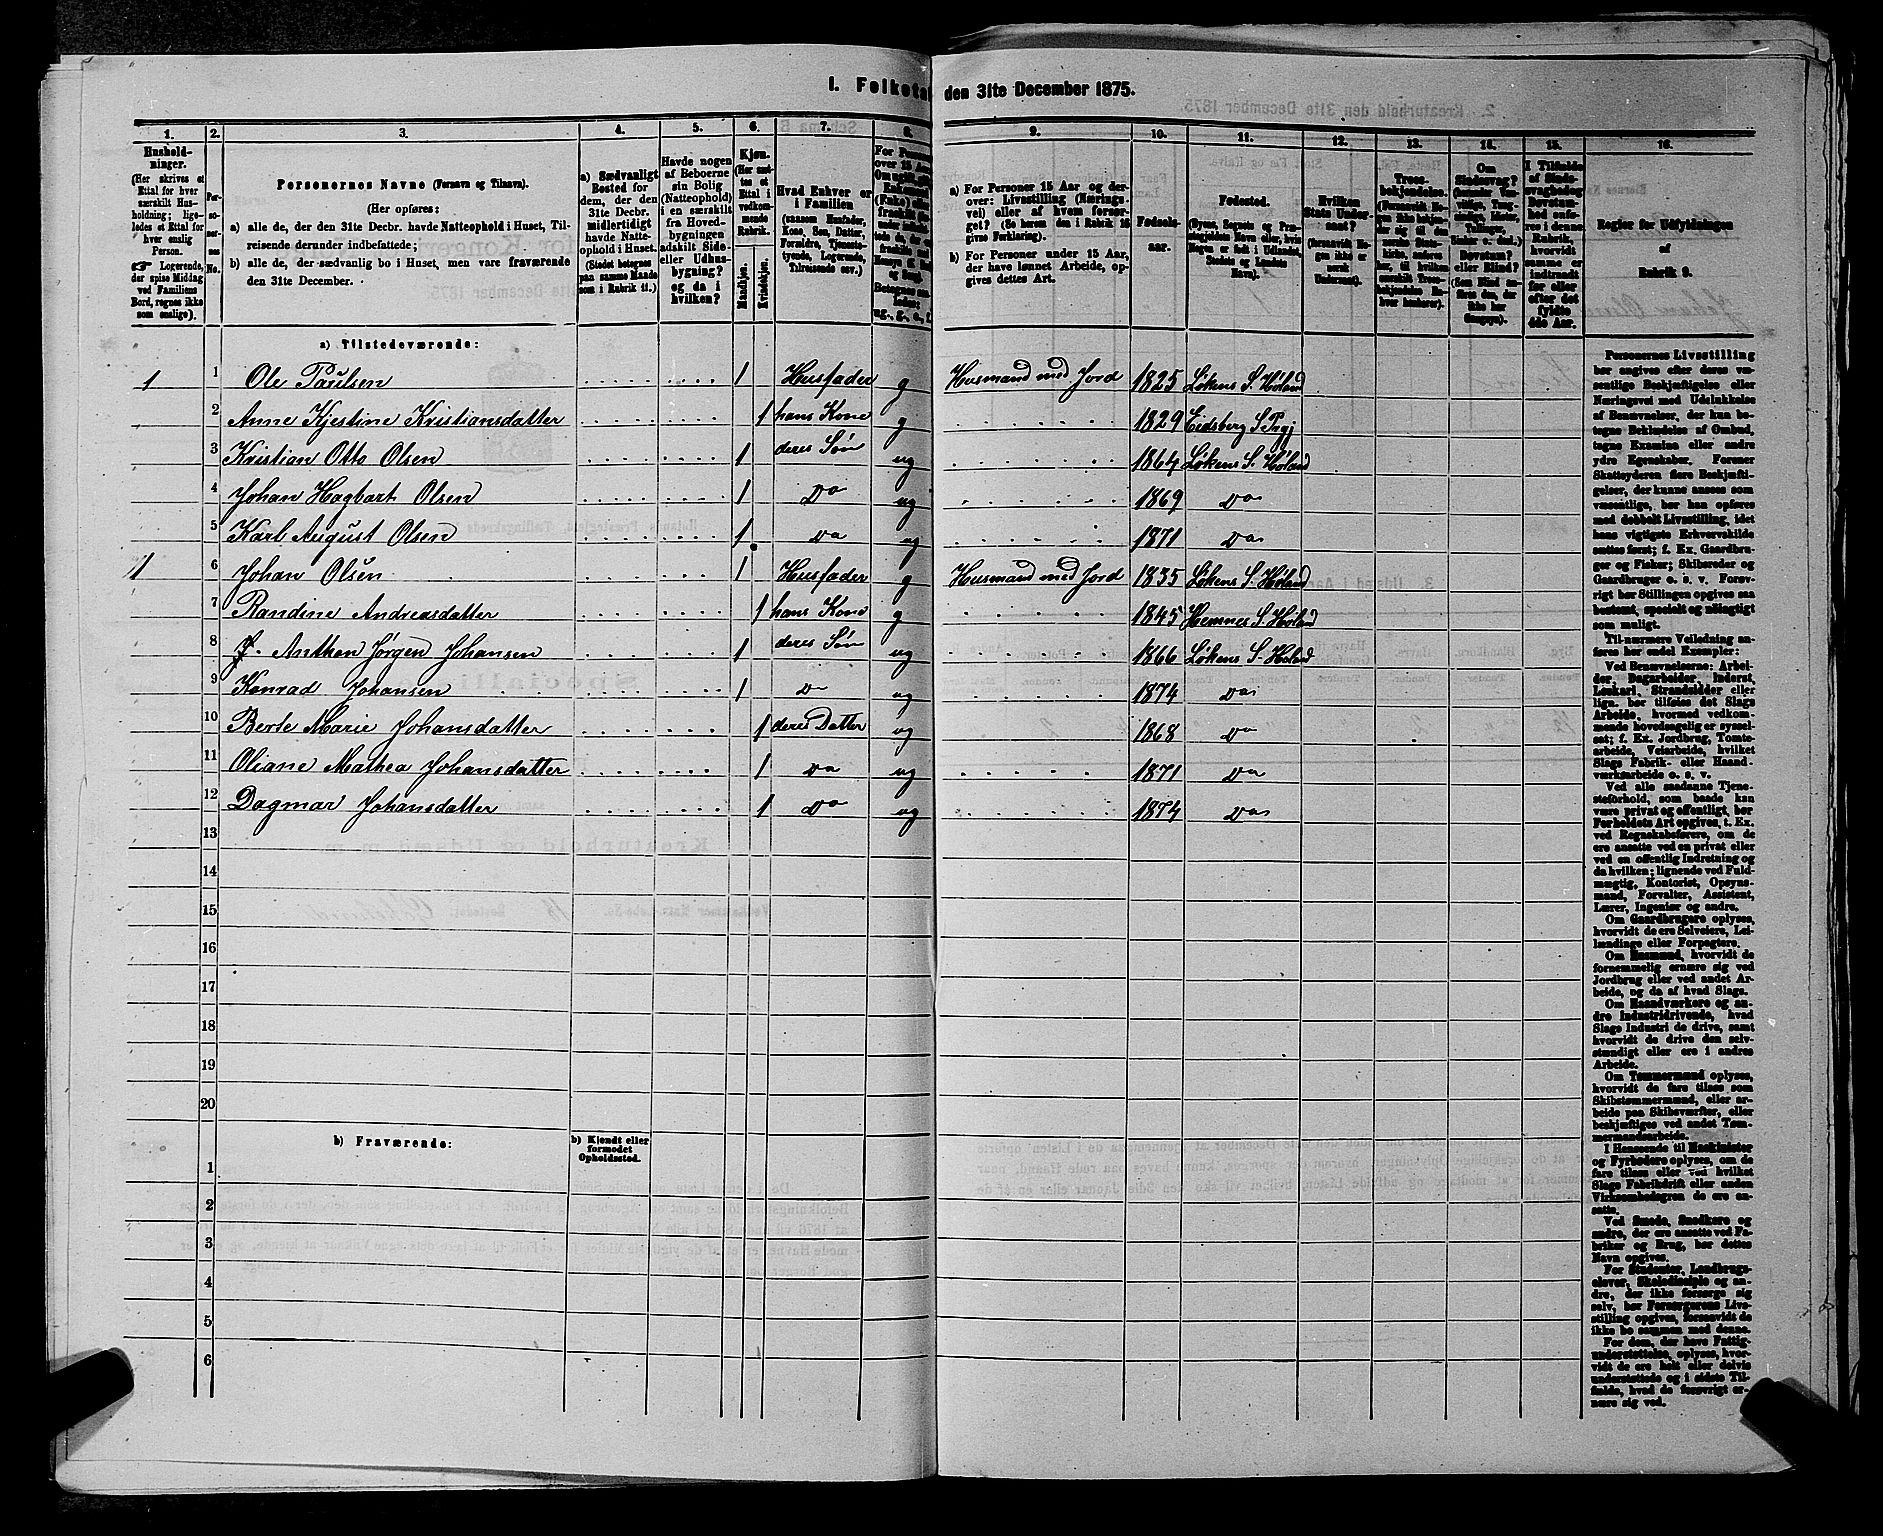 I. Folketal den 31te December 1875.
1. 2. 3. 4. 5. 6. 7. 8. 9. 10. 11. 12. 13. 14. 15. 16.
Husholdninger.
(Her skrives et Ettal for hver særskilt Husholdning; ligeledes et Ettal for hver enslig Person.
☞ Logerende, der spise Middag ved Familiens Bord, regnes ikke som enslige).
Personernes No.
Personernes Navne (Fornavn og Tilnavn).
(Her opføres:
a) alle de, der den 31te Decbr. havde Natteophold i Huset, Tilreisende derunder indbefattede;
b) alle de, der sædvanlig bo i Huset, men vare fraværende den 31te December.
a) Sædvanligt Bosted for dem, der den 31te Decbr. midlertidigt havde Natteophold i Huset.
(Stedet betegnes paa samme Maade som i Rubrik 11.)
Havde nogen af Beboerne sin Bolig (Natteophold) i en særskilt fra Hovedbygningen adskilt Side- eller Udhusbygning? og da i hvilken?
Kjøn.
(Her sættes et Ettal i vedkommende Rubrik.
Mandkjøn.
Kvindekjøn.
Hvad Enhver er i Familien
(saasom Husfader, Kone, Søn, Datter, Forældre, Tjenestetyende, Logerende, Tilreisende osv.)
a) For Personer 15 Aar og derover: Livsstilling (Næringsvei) eller af hvem forsørget? (Se herom den i Rubrik 16 givne Forklaring).
b) For Personer under 15 Aar, der have lønnet Arbeide, opgives dettes Art.
Fødselsaar.
Fødested.
(Byens, Sognets og Præstegjeldets Navn eller, hvis Nogen er født i Udlandet, Stedets og Landets Navn.)
Hvilken Stats Undersaat?
(forsaavidt Nogen ikke er norsk Undersaat).
Regler for Udfyldningen af Rubrik 9.
a) Tilstedeværende:
1 1 Ole Paulsen 1 Husfader g Husmand med Jord 1825 Løkens S. Høland
2 Anne Kjestine Kristiansdatter 1 hans Kone g 1829 Eidsberg S Prgj
3 Kristian Otto Olsen 1 deres Søn ug 1864 Løkens S. Høland
4 Johan Hagbart Olsen 1 Do ug 1869 Do
5 Karl August Olsen 1 Do ug 1871 Do
1 6 Johan Olsen 1 Husfader g Husmand med Jord 1835 Løkens S. Høland
7 Randine Andreasdatter 1 hans Kone g 1845 Hemnes S. Høland
8 Anthon Jørgen Johansen 1 deres Søn ug 1866 Løkens S. Høland
9 Konrad Johansen 1 Do ug 1874 Do
10 Berte Marie Johansdatter 1 deres Datter ug 1868 Do
11 Oliane Mathea Johansdatter 1 Do ug 1871 Do
12 Dagmar Johansdatter 1 Do ug 1874 Do
13
14
15
16
17
18
19
20
b) Fraværende: b) Kjendt eller formodet Opholdssted.
1
2
3
4
5
6
Personernes Livsstilling
bør angives efter deres væ-
sentlige Beskjæftigelse eller
Næringsvei med Udelukkelse
af Benævnelser, der kun be-
tegne Beklædelse af Ombud,
tagne Examina eller andre
ydre Egenskaber. Forener
Skatteyderen flere Beskjæfti-
gelser, der kunne ansees som
væsentlige, bør han opføres
med dobbelt Livsstilling, idet
hans vigtigste Erhvervskilde
sættes først; f. Ex. Gaardbru-
ger og Fisker; Skibsreder og
Gaardbruger o. s. v. Forøv-
rigt bør Stillingen opgives saa
bestemt, specielt og nøiagtigt
som muligt.
Til nærmere Veiledning an-
føres her endel Exempler:
Ved Benævnelserne: Arbei-
der, Dagarbeider, Inderst,
Løskarl, Strandsidder eller
lign. bør tilføies det Slags
Arbeide, hvormed vedkom-
mende hovedsagelig er syssel-
sat; f. Ex. Jordbrug, Tomte-
arbeide, Veiarbeide, hvilket
Slags Fabrik- eller Haand-
værksarbeide o. s. v.
Ved alle saadanne Tjene-
steforhold, som baade kan
være privat og offentligt, bør
Forholdets Art opgives, t. Ex.
ved Regnskabsførere, om de
ere ansatte ved en privat eller
ved en offentlig Indretning og
da hvilken; lignende ved Fuld-
mægtig, Kontorist, Opsyns-
mand, Forvalter, Assistent,
Lærer, Ingeniør og andre.
Om Gaardbrugere oplyses,
hvorvidt de ere Selveiere, Lei-
lændinge eller Forpagtere.
Om Husmænd, hvorvidt de
fornemmelig ernære sig ved
Jordbrug eller ved andet Ar-
beide, og da af hvad Slags.
Om Haandværkere og an-
dre Industridrivende, hvad
Slags Industri de drive, samt
hvorvidt de drive den selv-
stændigt eller ere i andres
Arbeide.
Om Tømmermænd oplyses,
hvorvidt de fare tilsøs som
Skibstømmermænd, eller ar-
beide paa Skibsværfter, eller
beskjæftiges ved andet Tøm-
mermandsarbeide.
I Henseende til Maskinister
og Fyrbødere oplyses, om de
fare tilsøs eller ved hvilket
Slags Fabrikdrift eller anden
Virksomhedsgren de ere an-
satte.
Ved Smede, Snedkere og
andre, der ere ansatte ved Fa-
briker og Brug, bør dettes
Navn opgives.
For Studenter, Landbrugs-
elever, Skoledisciple og an-
dre, der ikke forsørge sig
selv, bør Forsørgerens Livs-
stilling opgives, forsaavidt de
ikke bo sammen med denne.
For dem, der have Fattig-
understøttelse, oplyses, hvor-
vidt de ere helt eller delvis
understøttede og i sidste Til-
fælde, hvad de forøvrigt er-
nære sig ved.